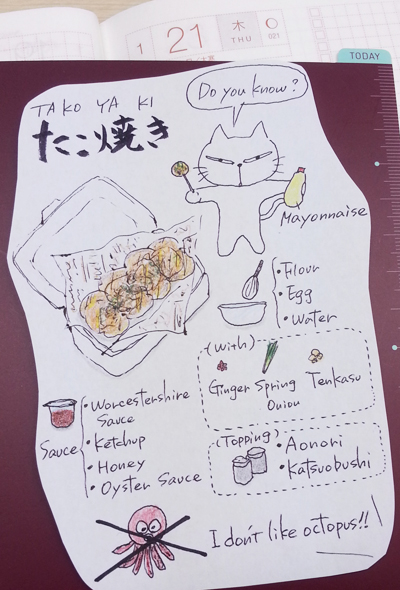 1
21
木
THU
021
TODAY
Do you know?
TAKO YA KI
たこ焼き
Mayonnaise
・Flour
・Egg
・Water
(With)
Ginger
Spring Onion
Tenkasu
Sauce
・Worcestershire
Sauce
・Ketchup
・Honey
・Oyster Sauce
(Topping)
・Aonori
・Katsuobushi
I don't like octopus!!